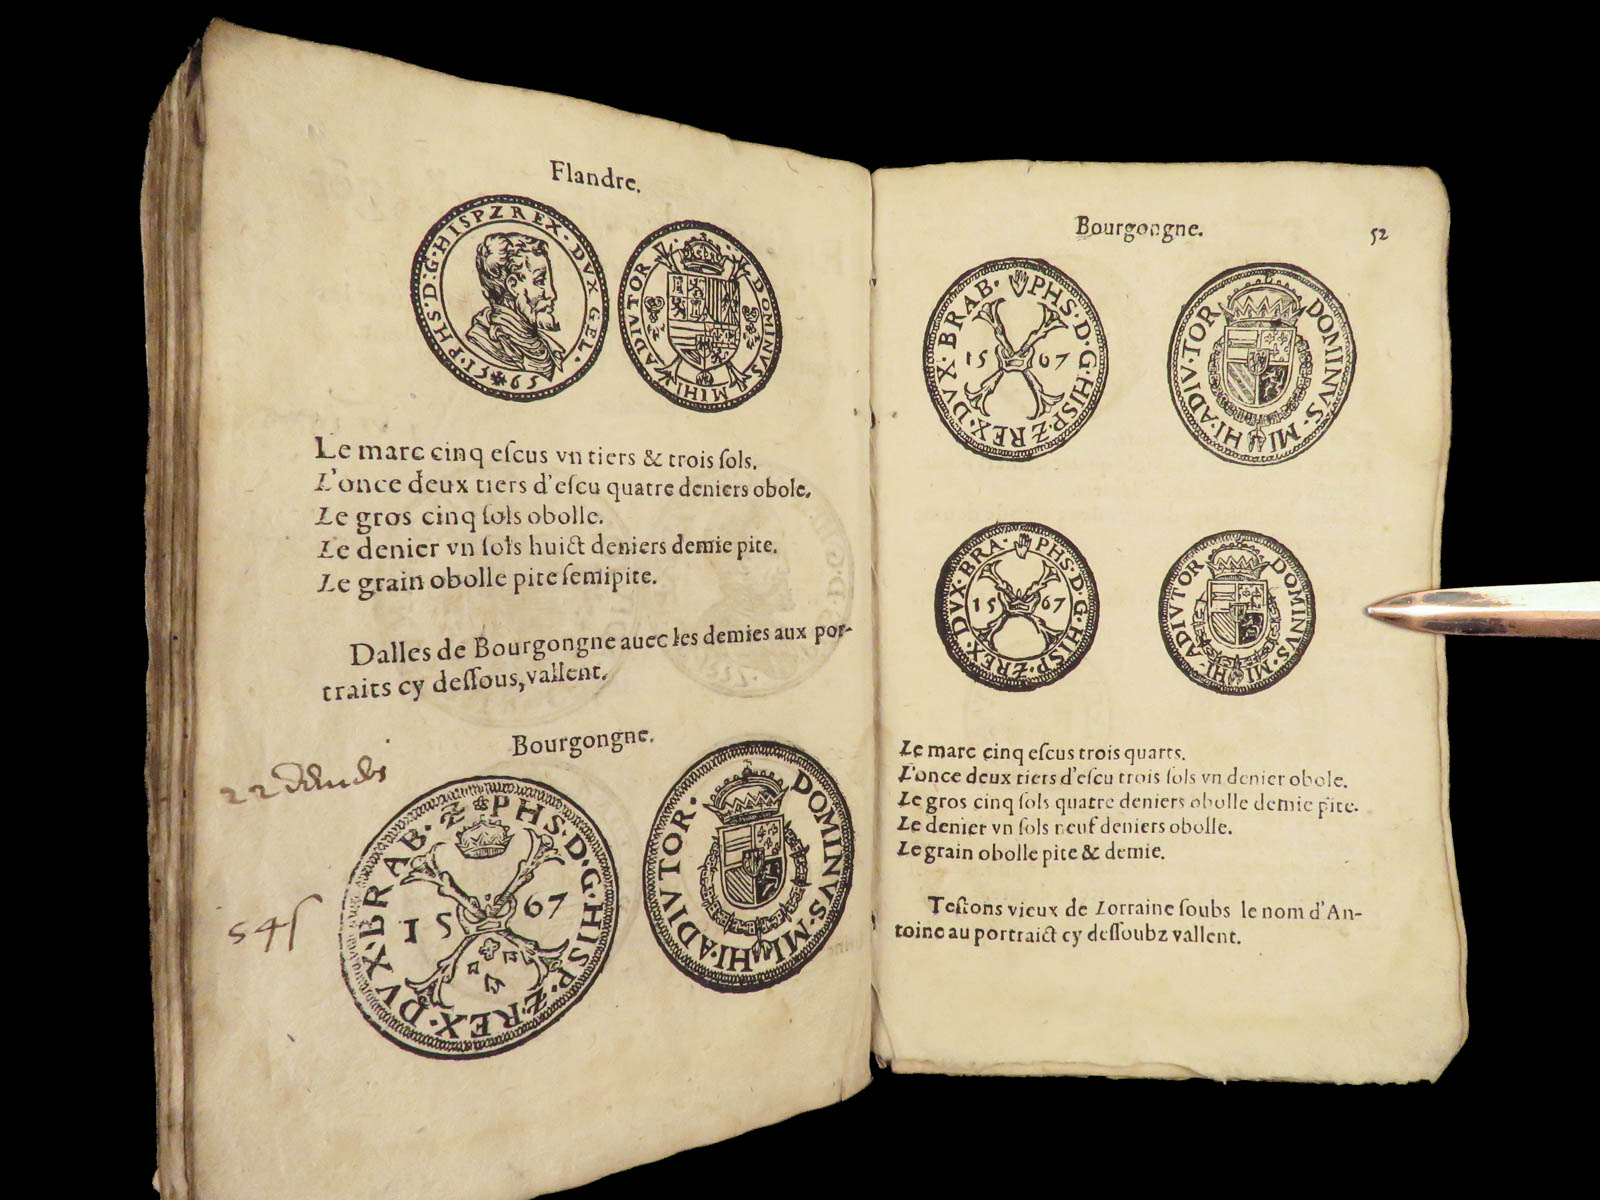 Flandre.
·PHS·D:G·HISPZREX·DVX GEL·
15 65
DOMINVS MIHI ADIVTOR
Le marc cinq eſcus vn tiers & trois ſols.
L'once deux tiers d'eſcu quatre deniers obole.
Le gros cinq ſols obolle.
Le denier vn ſols huict deniers demie pite.
Le grain obolle pite ſemipite.
Dalles de Bourgongne auec les demies aux por-
traits cy deſſous, vallent.
Bourgongne.
545
PHS·D·G·HISP·Z·REX·DVX·BRAB·Z
15 67
DOMINVS·MIHI·ADIVTOR·
Bourgongne.
52
PHS·D·G·HISP·Z·REX·DVX·BRAB·
15 67
DOMINVS·MIHI·ADIVTOR
PHS·D·G·HISP·Z·REX·DVX·BRA·
15 67
DOMINVS·MIHI·ADIVTOR
Le marc cinq eſcus trois quarts.
L'once deux tiers d'eſcu trois ſols vn denier obole.
Le gros cinq ſols quatre deniers obolle demie pite.
Le denier vn ſols neuf deniers obolle.
Le grain obolle pite & demie.
Teſtons vieux de Lorraine ſoubs le nom d'An-
toine au portraict cy deſſoubz vallent.